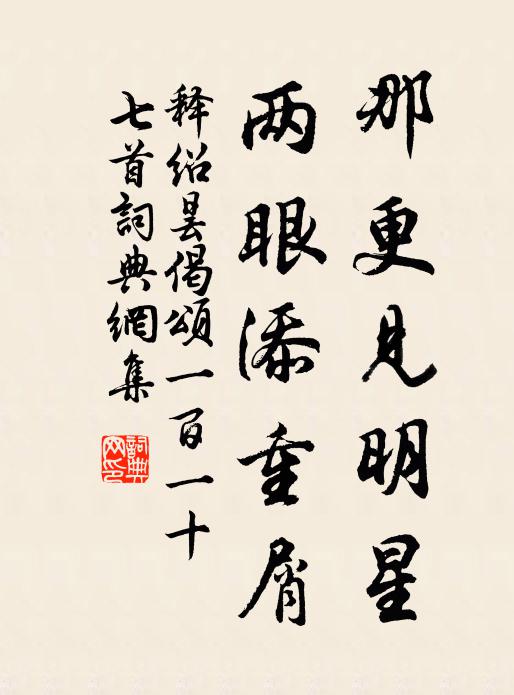 那更见明星
两眼添重屑
释绍昙偈頌一百一十
七首詞典網集
詞典网印